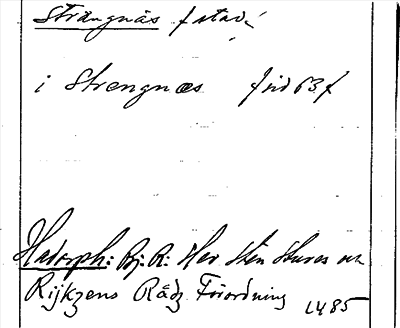 Strängnäs f stad.
i Strengnæs sid 63 f
Hadorph: Bj: R: Her Sten Stures och
Rijkzens Rådz Förordning 1485